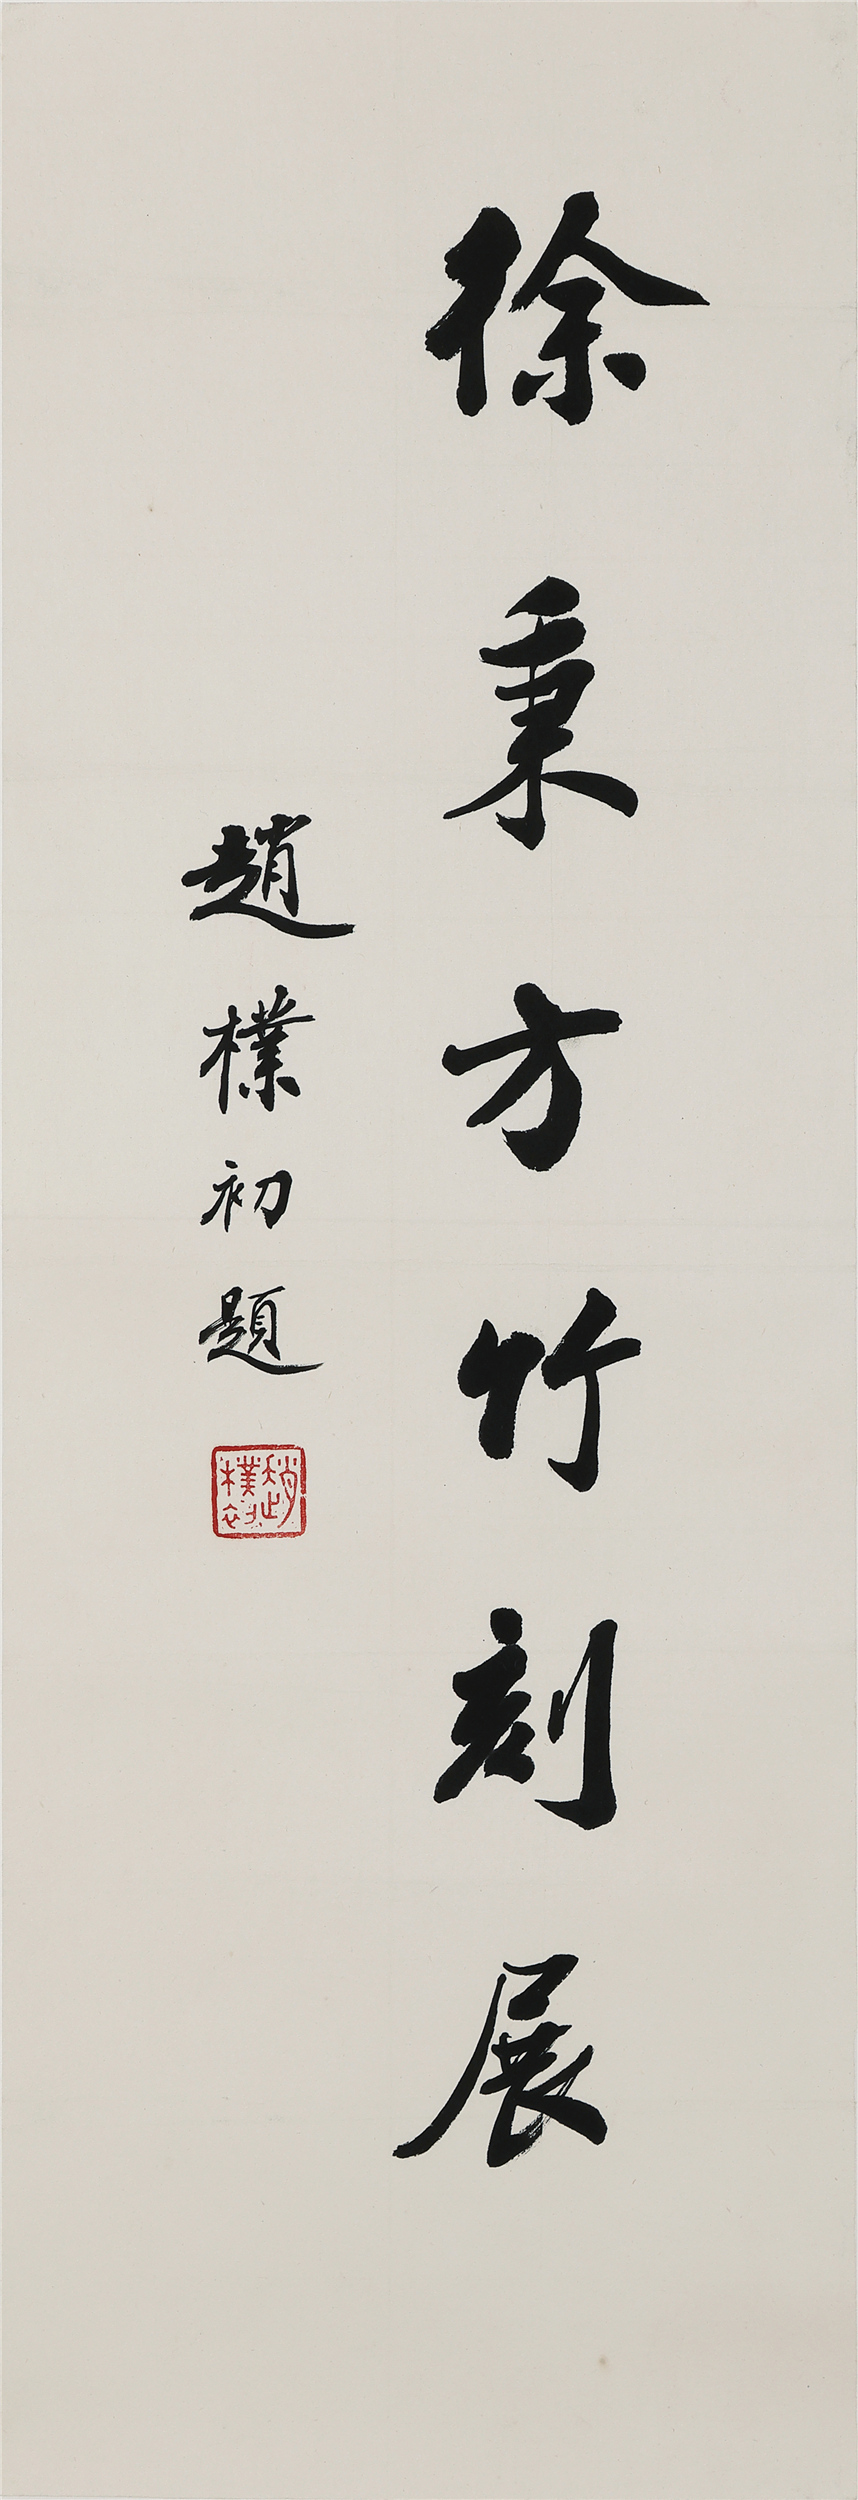 徐秉方竹刻展
趙樸初題
趙樸初